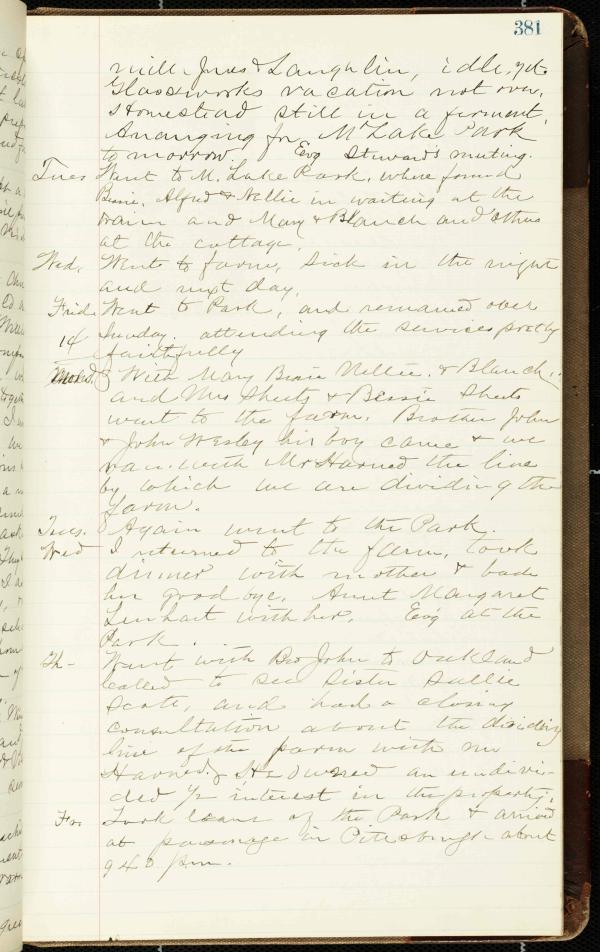 381
mill Jones & Laughlin, idle, yet.
Glassworks vacation not over,
Homestead still in a ferment.
Arranging for Mt Lake Park
tomorrow. Evg Steward's meeting.
Tues Went to M. Lake Park, where found
Bessie, Alfred & Nellie in waiting at the
train and Mary & Blanch and others
at the cottage.
Wed. Went to farm, Sick in the night
and next day.
Frid. Went to Park, and remained over
14 Sunday. attending the services pretty
faithfully
With Mary Bessie Nellie. & Blanch,
and Mrs Sheets & Bessie Sheets
went to the farm. Brother John
& John Wesley his boy came & we
ran with Mr Harned the line
by which we are dividing the
farm.
Tues. Again went to the Park.
Wed I returned to the farm, took
dinner with mother & bade
her good bye. Aunt Margaret
Linhart with her. Evg at the
Park.
Th- Went with Bro John to Oakland
called to see Sister Sallie
Scott, and had a closing
consultation about the dividing
line of the farm with Mr
Harned. He owned an undivi-
ded ½ interest in the property.
Fri Took leave of the Park & arrived
at parsonage in Pittsburgh about
9 40 p.m.